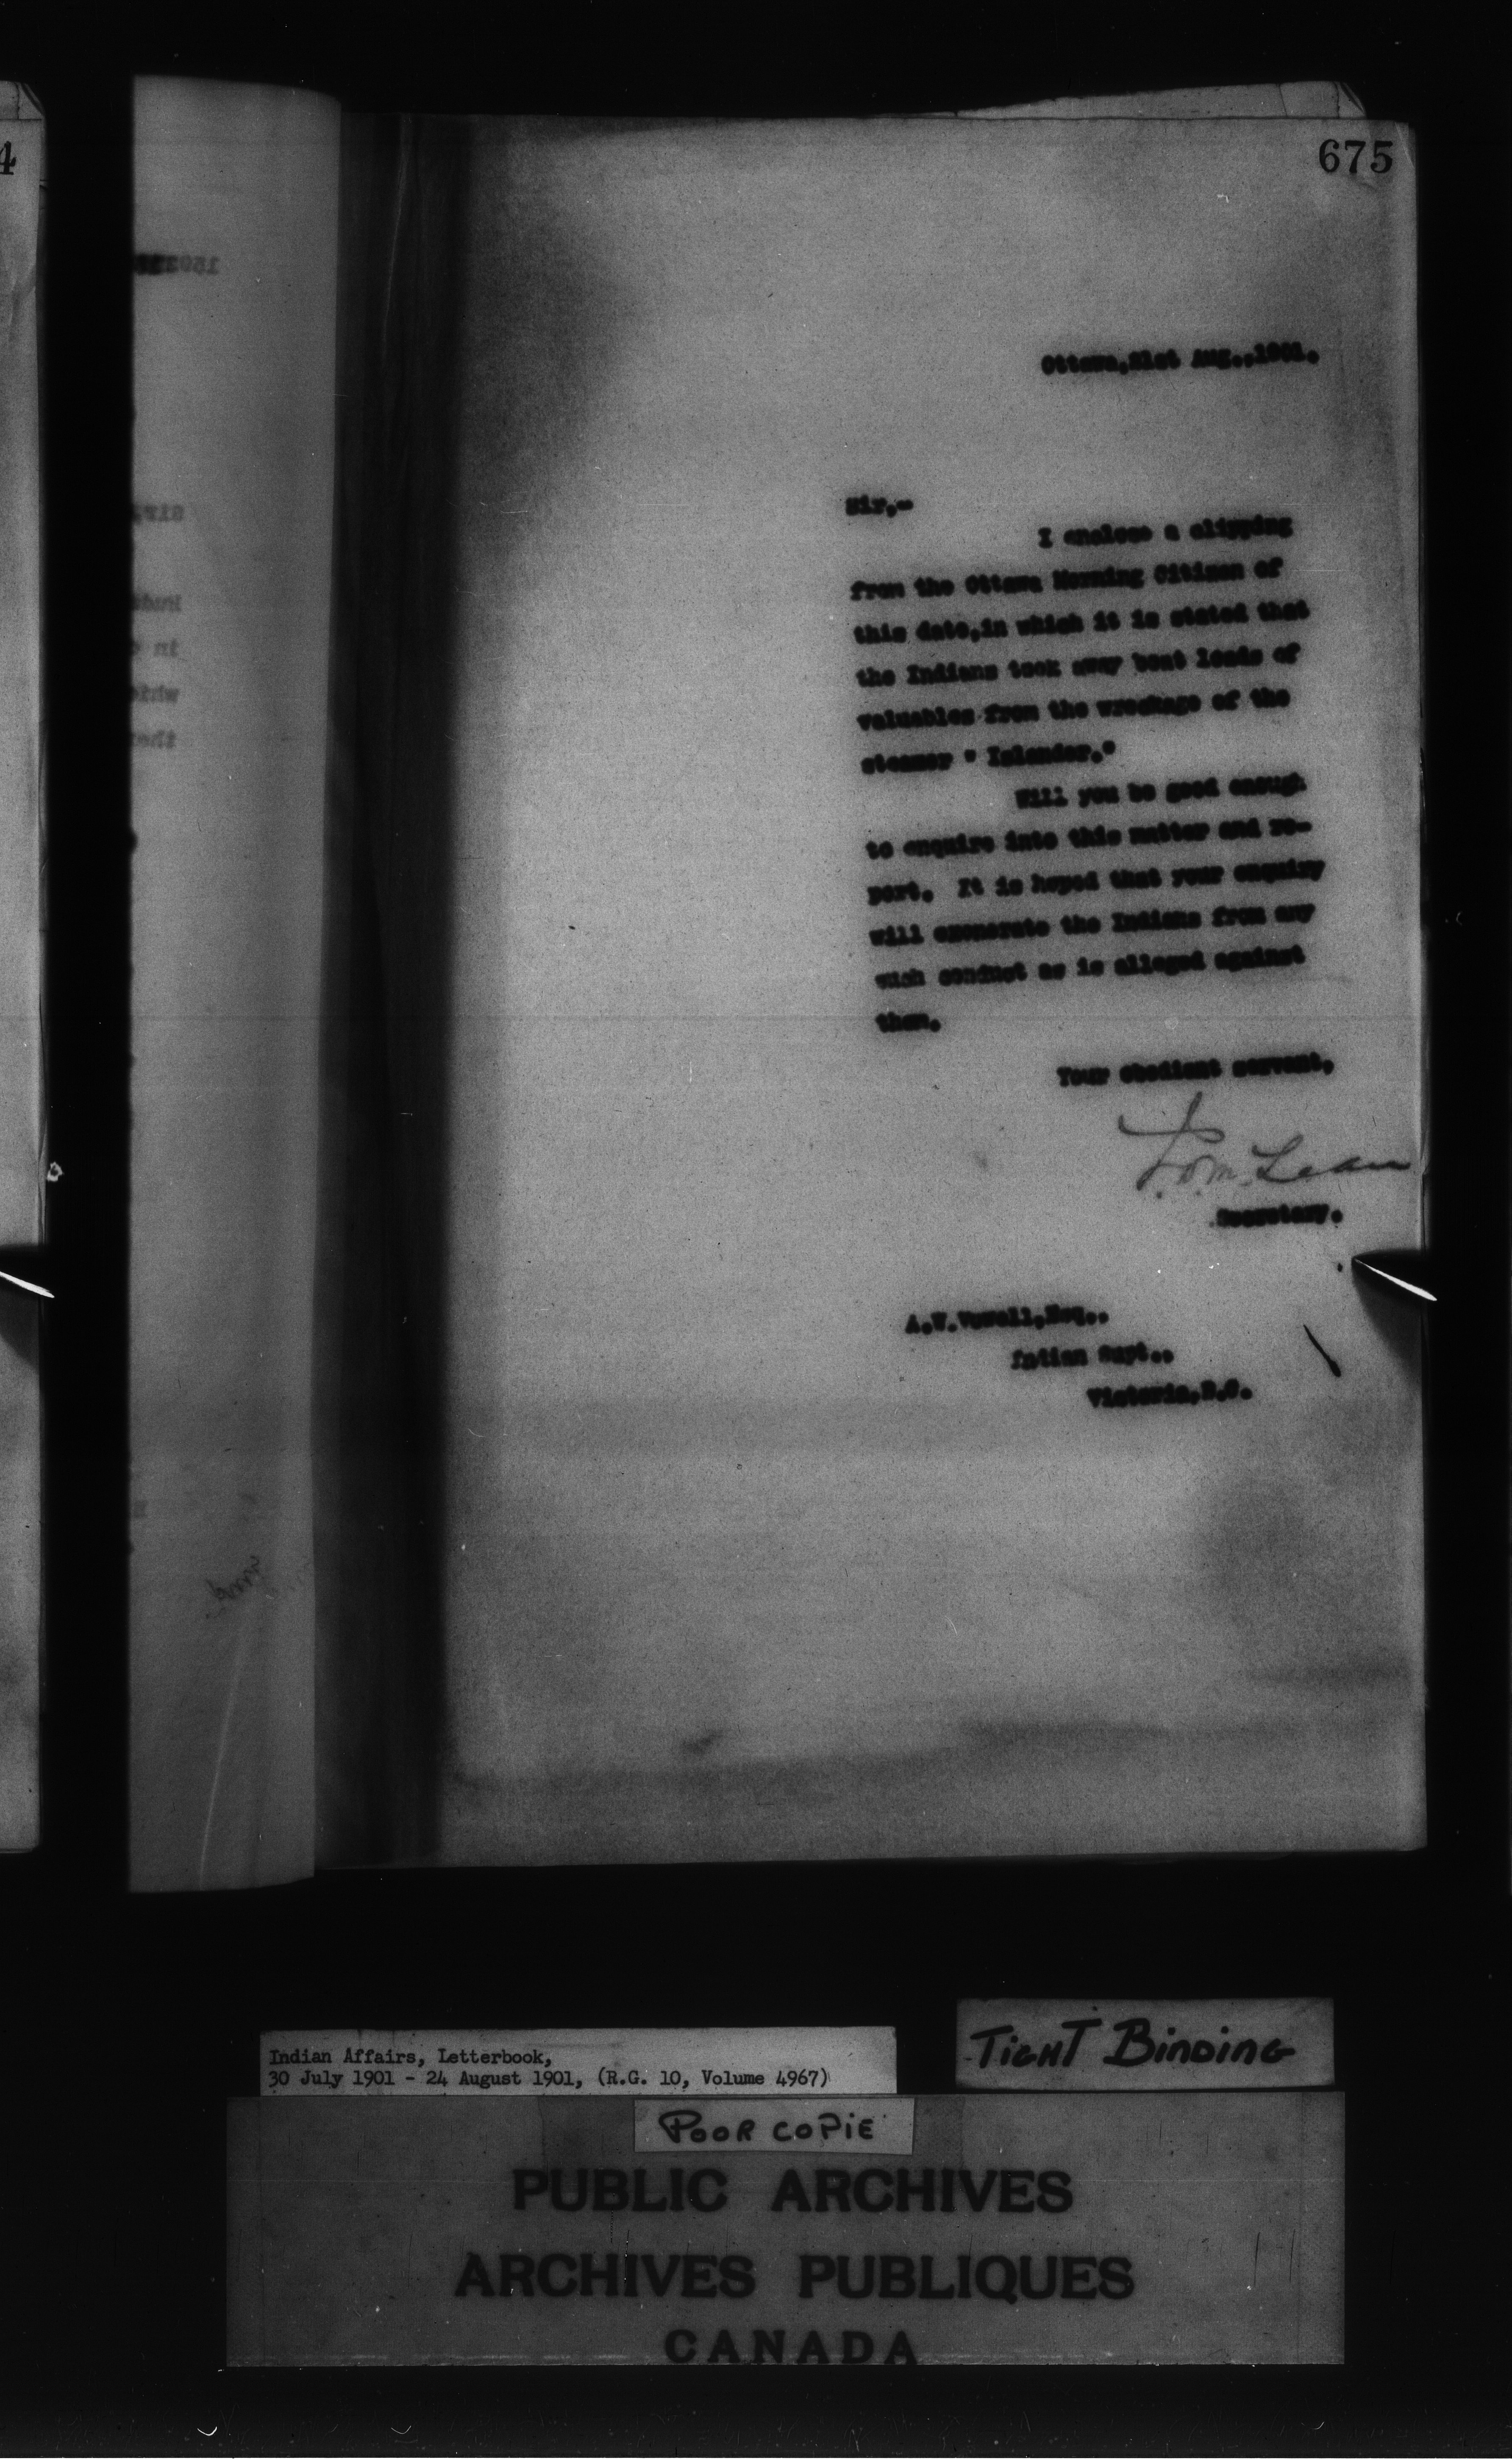 675
Ottawa,21st Aug.,1901.
Sir,-
I enclose a clipping
from the Ottawa Morning Citizen of
this date,in which it is stated that
the Indians took away boat loads of
valuables from the wreckage of the
steamer " Islander."
Will you be good enough
to enquire into this matter and re-
port. It is hoped that your enquiry
will exonerate the Indians from any
such conduct as is alleged against
them.
Your obedient servant,
J.D.McLean
Secretary.
A.W.Vowell,Esq.,
Indian Supt.,
Victoria,B.C.
TIGHT BINDING
Indian Affairs, Letterbook,
30 July 1901 - 24 August 1901, (R.G. 10, Volume 4967)
POOR COPIE
PUBLIC ARCHIVES
ARCHIVES PUBLIQUES
CANADA